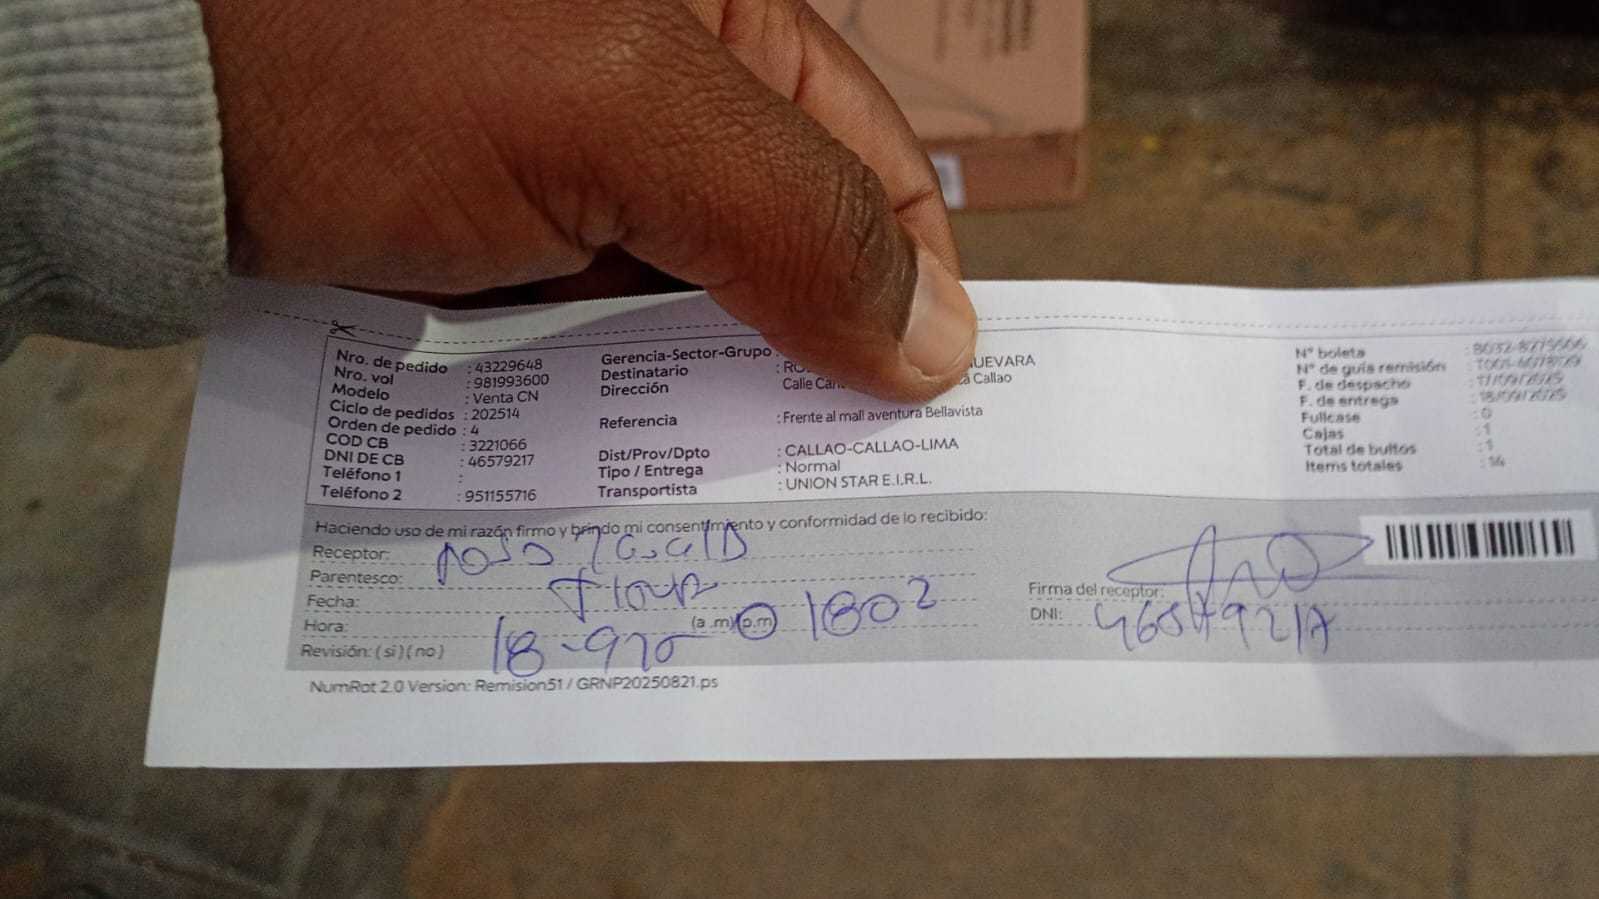 Nro. de pedido : 43229648
Nro. vol : 981993600
Modelo : Venta CN
Ciclo de pedidos : 202514
Orden de pedido : 4
COD CB : 3221066
DNI DE CB : 46579217
Teléfono 1 :
Teléfono 2 : 951155716
Gerencia-Sector-Grupo :
Destinatario : RO UEVARA
Dirección Calle Callao
Referencia : Frente al mall aventura Bellavista
Dist/Prov/Dpto : CALLAO-CALLAO-LIMA
Tipo / Entrega : Normal
Transportista : UNION STAR E.I.R.L.
N° boleta
N° de guía remisión
F. de despacho : 17/09/2025
F. de entrega : 18/09/2025
Fullcase : 0
Cajas : 1
Total de bultos : 1
Items totales : 14
Haciendo uso de mi razón firmo y brindo mi consentimiento y conformidad de lo recibido:
Receptor:
Parentesco:
Fecha:
Hora: (a .m) (p.m) 1802
Revisión: ( si ) ( no ) 18-9
Firma del receptor:
DNI: 46579217
NumRot 2.0 Version: Remision51 / GRNP20250821.ps